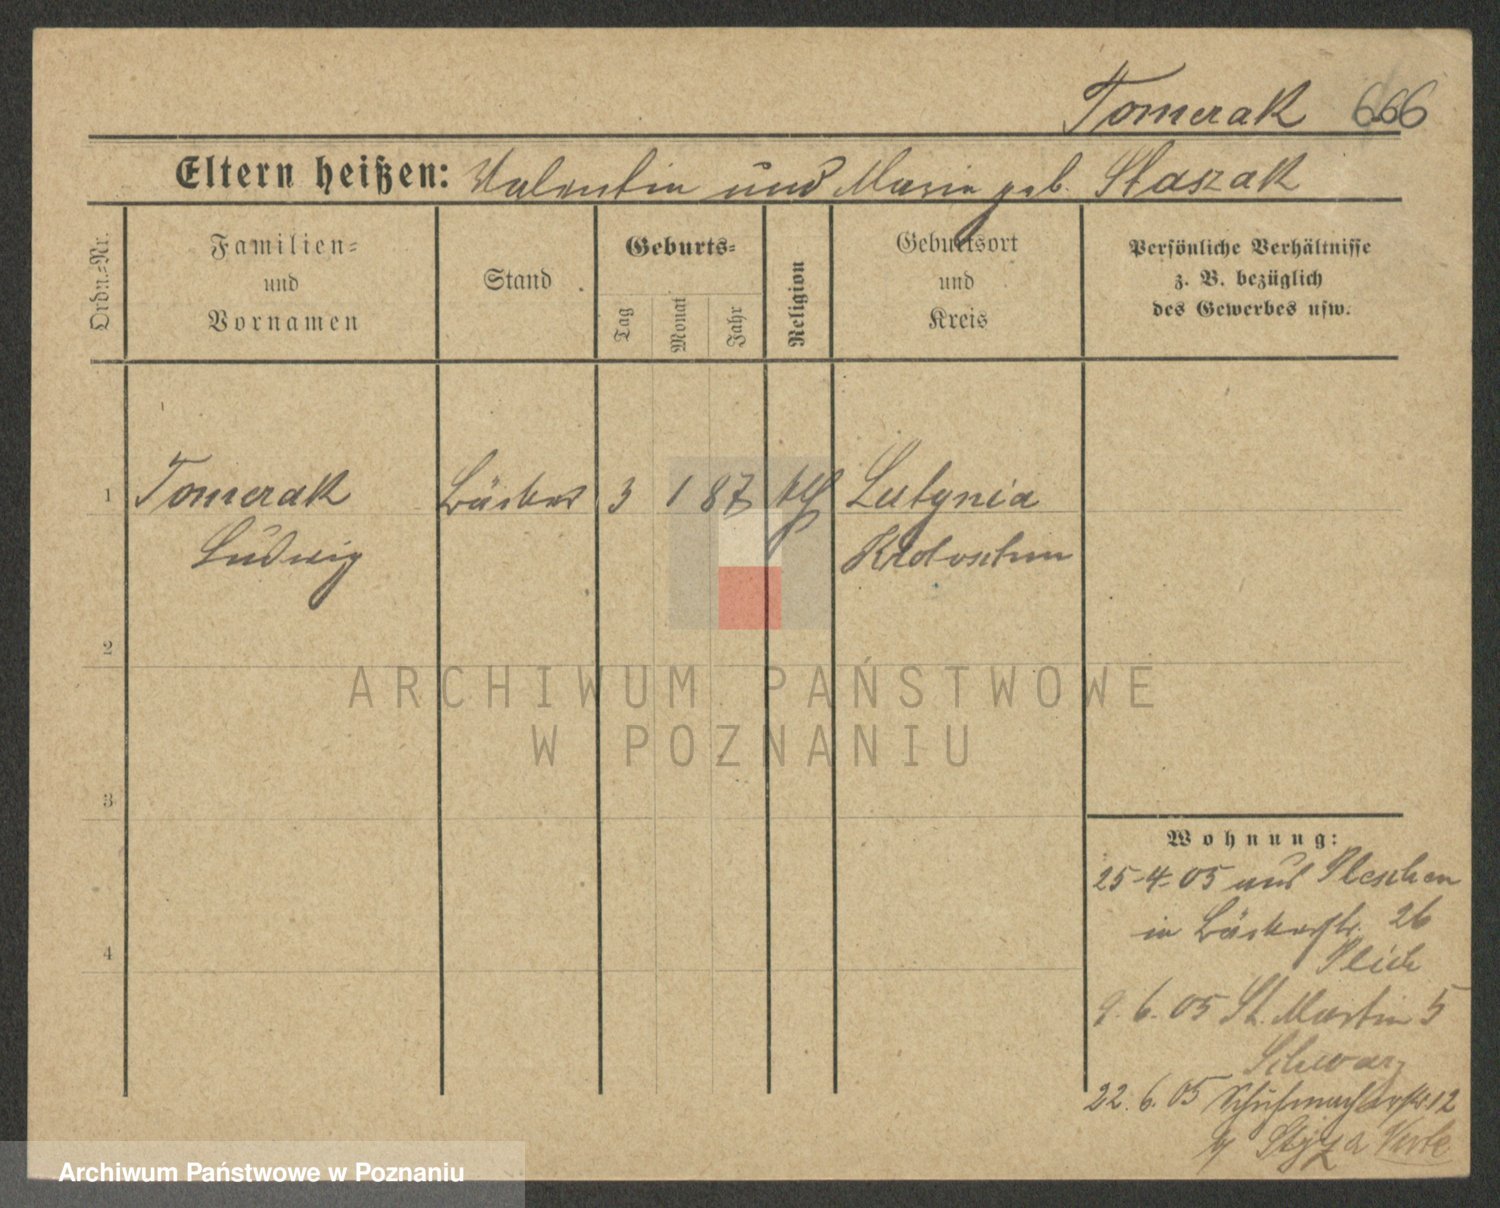 Tomerak 666
Eltern heißen: Valentin und Marie geb. Staszak
Ordn.=Nr.
Familien=
und
Vornamen
Stand
Geburts=
Tag
Monat
Jahr
Religion
Geburtsort
und
Kreis
Persönliche Verhältnisse
z. B. bezüglich
des Gewerbes usw.
1 Tomerak Bäcker 3 1 87 kth Lutynia
Ludwig Krotoschin
2
3
4
Wohnung:
25-4-05 aus Pleschen
in Bäckerstr. 26
9. 6. 05 St. Martin 5
Schwarz
22. 6. 05 Schuhmacherstr. 12
ARCHIWUM PAŃSTWOWE
W POZNANIU
Archiwum Państwowe w Poznaniu